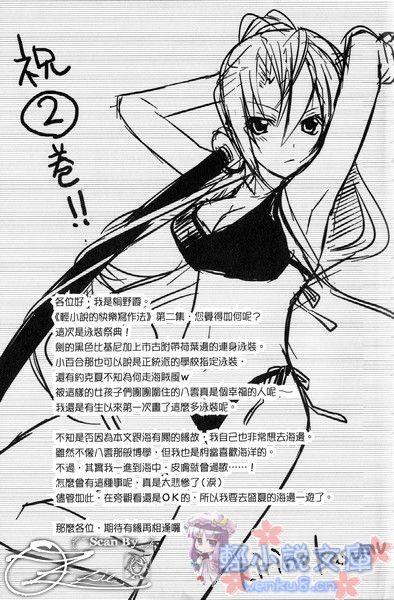 祝
②
巻!!
各位好，我是桐野霞。
《輕小說的快樂寫作法》第二集，您覺得如何呢？
這次是泳裝祭典！
劍的黑色比基尼加上市古附帶荷葉邊的連身泳裝。
小百合那也可以說是正統派的學校指定泳裝，
還有約克夏不知為何走海賊風w
被這樣的女孩子們團團圍住的八雲真是個幸福的人呢──
我還是有生以來第一次畫了這麼多泳裝呢。
不知是否因為本文跟海有關的緣故，我自己也非常想去海邊。
雖然不像八雲那般博學，但我也是相當喜歡海洋的。
不過，其實我一進到海中，皮膚就會過敏……！
怎麼會有這種事呢，真是太悲慘了(淚)
儘管如此，在旁觀看還是OK的，所以我要去盛夏的海邊一遊了。
那麼各位，期待有緣再相逢囉
Scan By
輕小說文庫
wenku8.cn